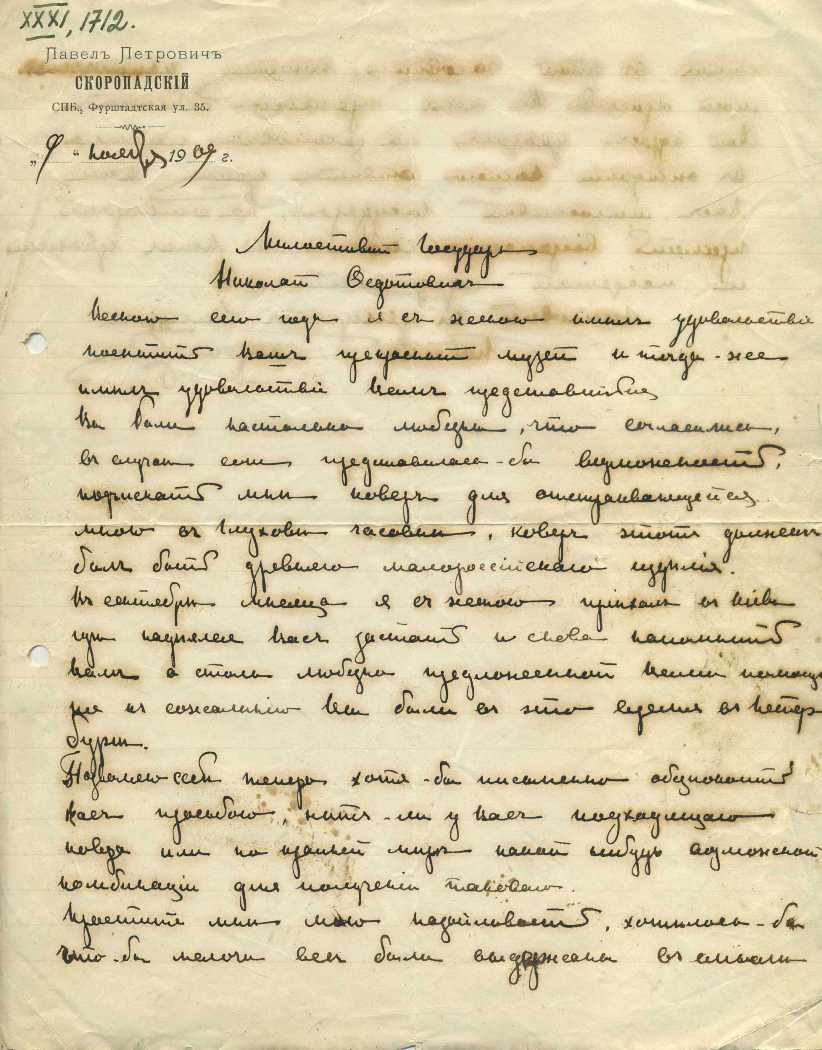 XXXI, 1712.
Павелъ Петровичъ
СКОРОПАДСКІЙ
СПБ., Фурштадтская ул. 35.
„9“ ноября 1909 г.
Милостивый Государь
Николай Федотовичъ
Весною сего года я съ женою имѣлъ удовольствіе
посѣтить Вашъ прекрасный музей и тогда-же
имѣлъ удовольствіе Вамъ представиться
Вы были настолько любезны, что согласились,
въ случаѣ если представилась-бы возможность,
подыскать мнѣ коверъ для отстраивающейся
мною въ Глуховѣ часовни, коверъ этотъ долженъ
былъ быть древняго малороссійскаго издѣлія.
Въ сентябрѣ мѣсяцѣ я съ женою пріѣхалъ въ Кіевъ
гдѣ надѣялся Васъ застать и снова напомнить
Вамъ о столь любезно предложенной Вами помощи
но къ сожалѣнію Вы были въ это время въ Петер
бургѣ.
Позволяю себѣ теперь хотя-бы письменно обезпокоить
Васъ просьбою, нѣтъ-ли у Васъ подходящаго
ковра или по крайней мѣрѣ какой нибудь возможной
комбинаціи для полученія таковаго.
Простите мнѣ мою надоѣдливость, хотѣлось-бы
что-бы мелочи всѣ были выдержаны въ стилѣ